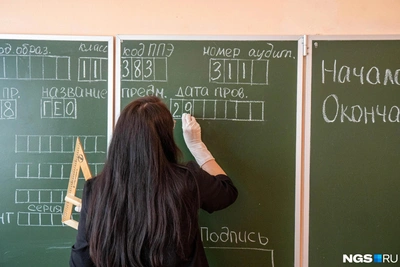 од образ. класс код ППЭ номер аудит.
11 383 311
пр. название предм. дата пров.
8 ГЕО 29
серия
Подпись
Начало
Оконча
NGS.RU